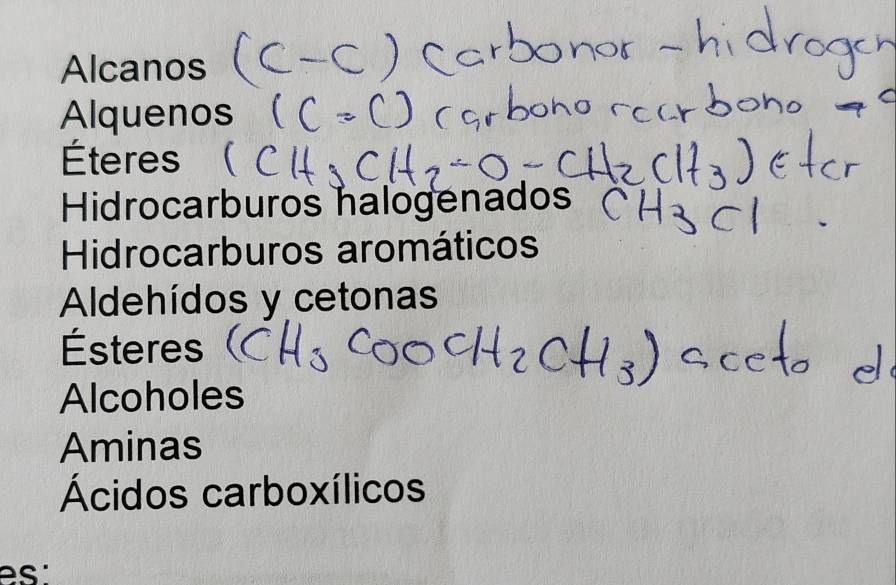 Alcanos (C-C) Carbonos - hidrogen
Alquenos (C=C) Carbono - carbono
Éteres (CH3CH2-O-CH2CH3) Eter
Hidrocarburos halogenados CH3Cl.
Hidrocarburos aromáticos
Aldehídos y cetonas
Ésteres (CH3COOCH2CH3) aceto de
Alcoholes
Aminas
Ácidos carboxílicos
es: